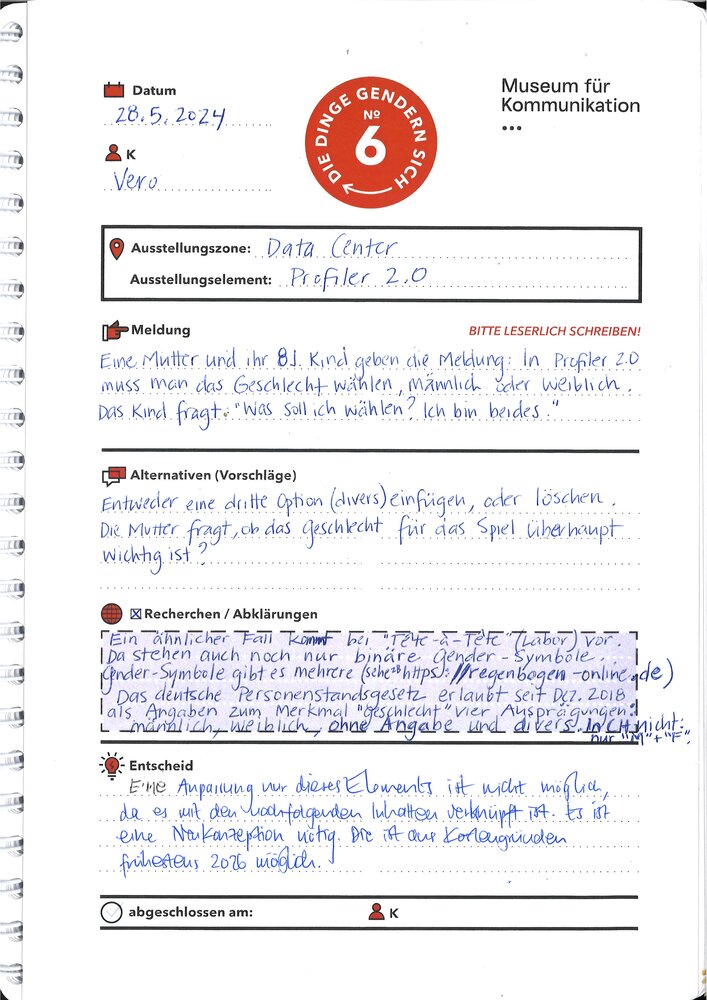 Datum
28.5.2024
K
Vero
DIE DINGE GENDERN SICH
Nº
6
Museum für
Kommunikation
Ausstellungszone: Data Center
Ausstellungselement: Profiler 2.0
Meldung
BITTE LESERLICH SCHREIBEN!
Eine Mutter und ihr 8j. Kind geben die Meldung: In Profiler 2.0
muss man das Geschlecht wählen, männlich oder weiblich.
Das Kind fragt: "Was soll ich wählen? Ich bin beides."
Alternativen (Vorschläge)
Entweder eine dritte Option (divers) einfügen, oder löschen.
Die Mutter fragt, ob das Geschlecht für das Spiel überhaupt
wichtig ist?
Recherchen / Abklärungen
Ein ähnlicher Fall kommt bei "Tête-à-Tête" (Labor) vor.
Da stehen auch noch nur binäre Gender-Symbole.
Gender-Symbole gibt es mehrere (sehe https://regenbogen-online.de)
Das deutsche Personenstandsgesetz erlaubt seit Dez. 2018
als Angaben zum Merkmal "Geschlecht" vier Ausprägungen:
männlich, weiblich, ohne Angabe und divers. In CH nicht:
nur "M" + "F".
Entscheid
Eine Anpassung nur dieses Elements ist nicht möglich,
da es mit den nachfolgenden Inhalten verknüpft ist. Es ist
eine Neukonzeption nötig. Die ist aus Kostengründen
frühestens 2026 möglich.
abgeschlossen am:
K